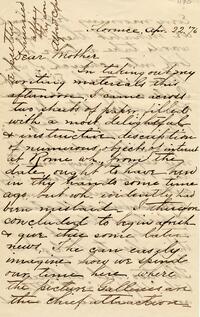 Florence, Apr. 22 '76
Dear Mother
In taking out my
writing materials this
afternoon, I came across
two sheets of paper, filled
with a most delightful
& instructive description
of numerous objects of interest
at Rome wh. from the
date ought to have been
in thy hands some time
ago, but wh. evidently has
been mislaid. I thereon
concluded to begin afresh
& give thee some later
news. Thee can easily
imagine how we spend
our time here, where
the picture galleries are
the chief attraction